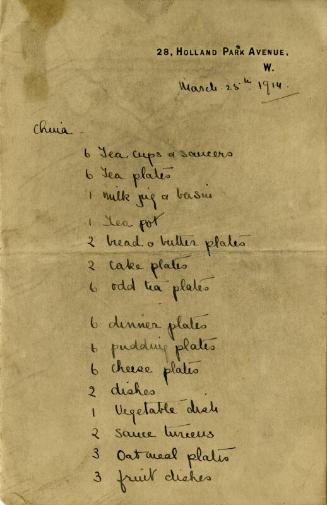 28, Holland Park Avenue,
W.
March 25th 1914
China
6 Tea cups & saucers
6 Tea plates
1 milk jug & basin
1 Tea pot
2 bread & butter plates
2 cake plates
6 odd tea plates
6 dinner plates
6 pudding plates
6 cheese plates
2 dishes
1 Vegetable dish
2 sauce tureens
3 Oatmeal plates
3 fruit dishes